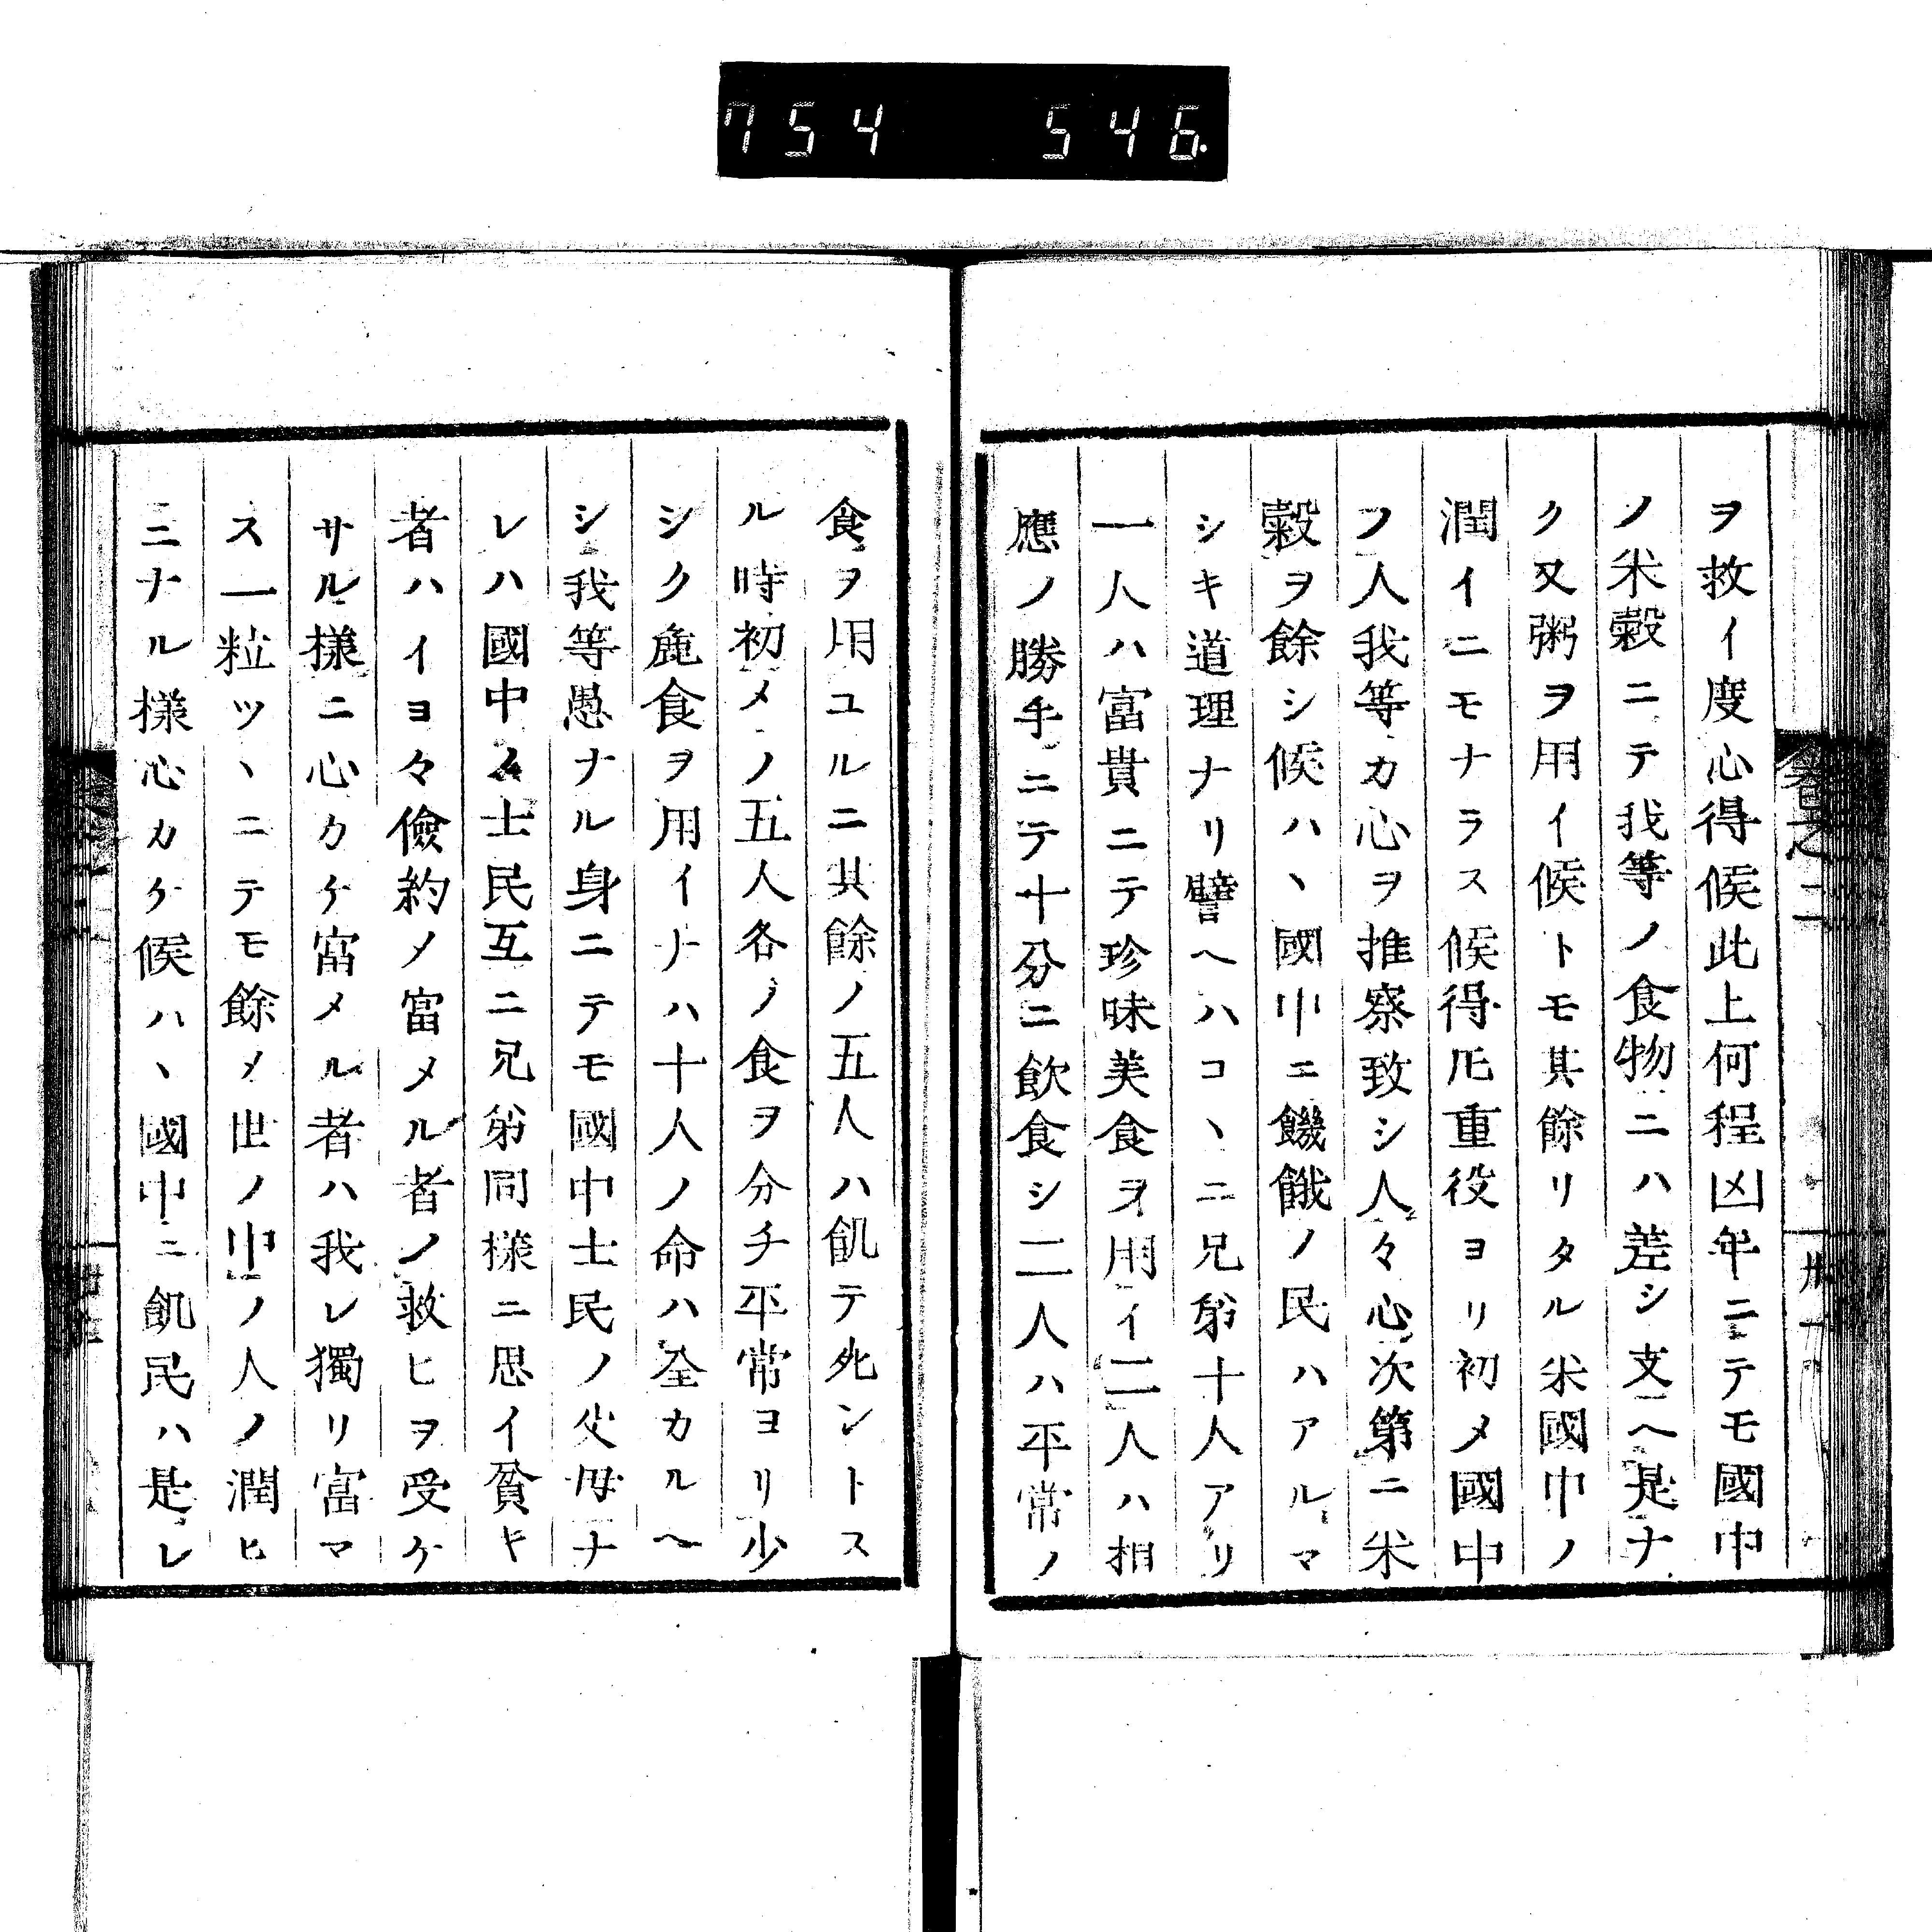 754 546.
ヲ救イ度心得候此上何程凶年ニテモ國中
ノ米糓ニテ我等ノ食物ニハ差シ支ヘ是ナ
ク又粥ヲ用イ候トモ其餘リタル米國中ノ
潤イニモナラス候得𪜈重役ヨリ初メ國中
ノ人我等カ心ヲ推察致シ人々心次第ニ米
糓ヲ餘シ候ハヽ國中ニ饑餓ノ民ハアルマ
シキ道理ナリ譬ヘハコヽニ兄弟十人アリ
一人ハ富貴ニテ珍味美食ヲ用イ二人ハ相
應ノ勝手ニテ十分ニ飲食シ二人ハ平常ノ
食ヲ用ユルニ其餘ノ五人ハ飢テ死ントス
ル時初メノ五人各ノ食ヲ分チ平常ヨリ少
シク麁食ヲ用イナハ十人ノ命ハ全カルヘ
シ我等愚ナル身ニテモ國中士民ノ父母ナ
レハ國中ノ士民互ニ兄弟同様ニ思イ貧キ
者ハイヨ々儉約ノ富メル者ノ救ヒヲ受ケ
サル様ニ心カケ富メル者ハ我レ獨リ富マ
ス一粒ツヽニテモ餘メ世ノ中ノ人ノ潤ヒ
ニナル様心カケ候ハヽ國中ニ飢民ハ是レ
卷之二
卅一